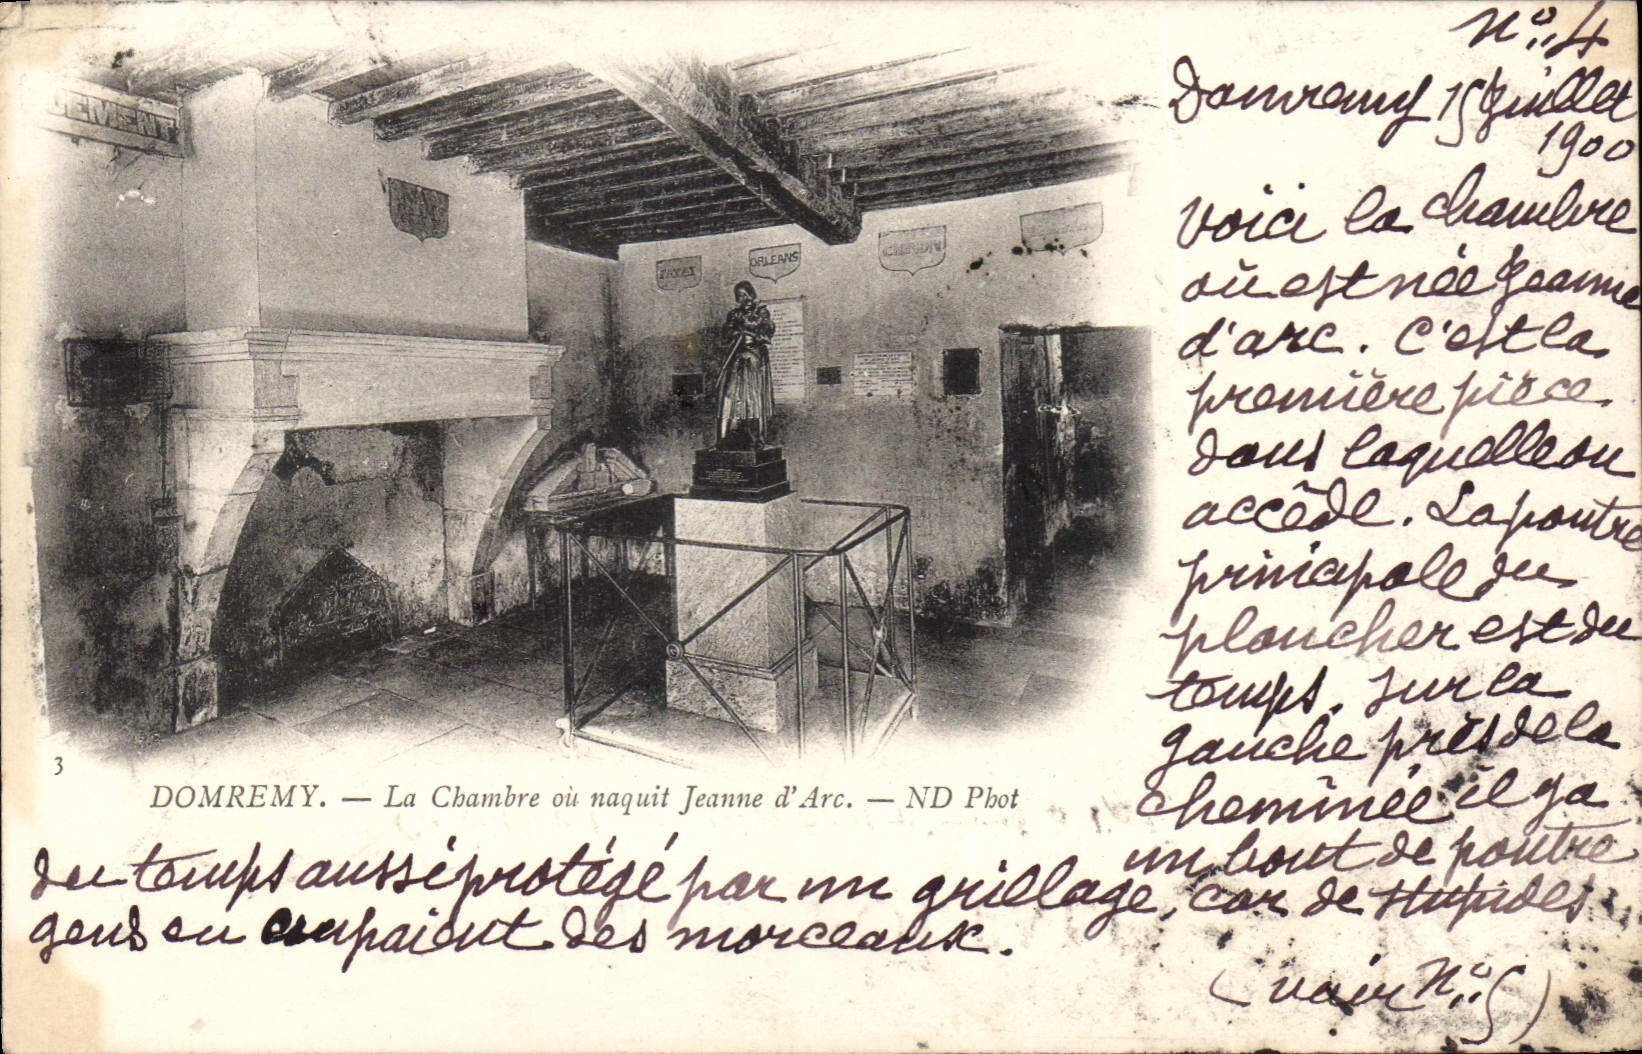 N° 4
Domremy 15 Juillet
1900
voici la chambre
où est née Jeanne
d'arc. C'est la
première pièce
dans laquelle on
accède. La poutre
principale du
plancher est du
temps. Sur la
gauche près de la
cheminée il y a
un bout de poutre
du temps aussi protégé par un grillage, car de stupides
gens en coupaient des morceaux.
(voir N° 5)
GEMENT
ORLEANS
CHINON
3
DOMREMY. — La Chambre où naquit Jeanne d'Arc. — ND Phot